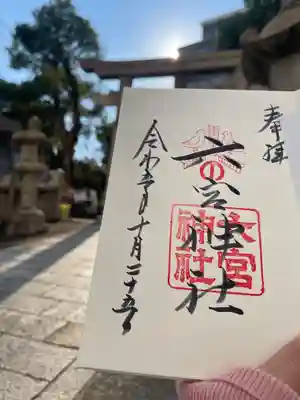 奉拝
六の宮神社
六宮
神社
令和五年十月二十五日